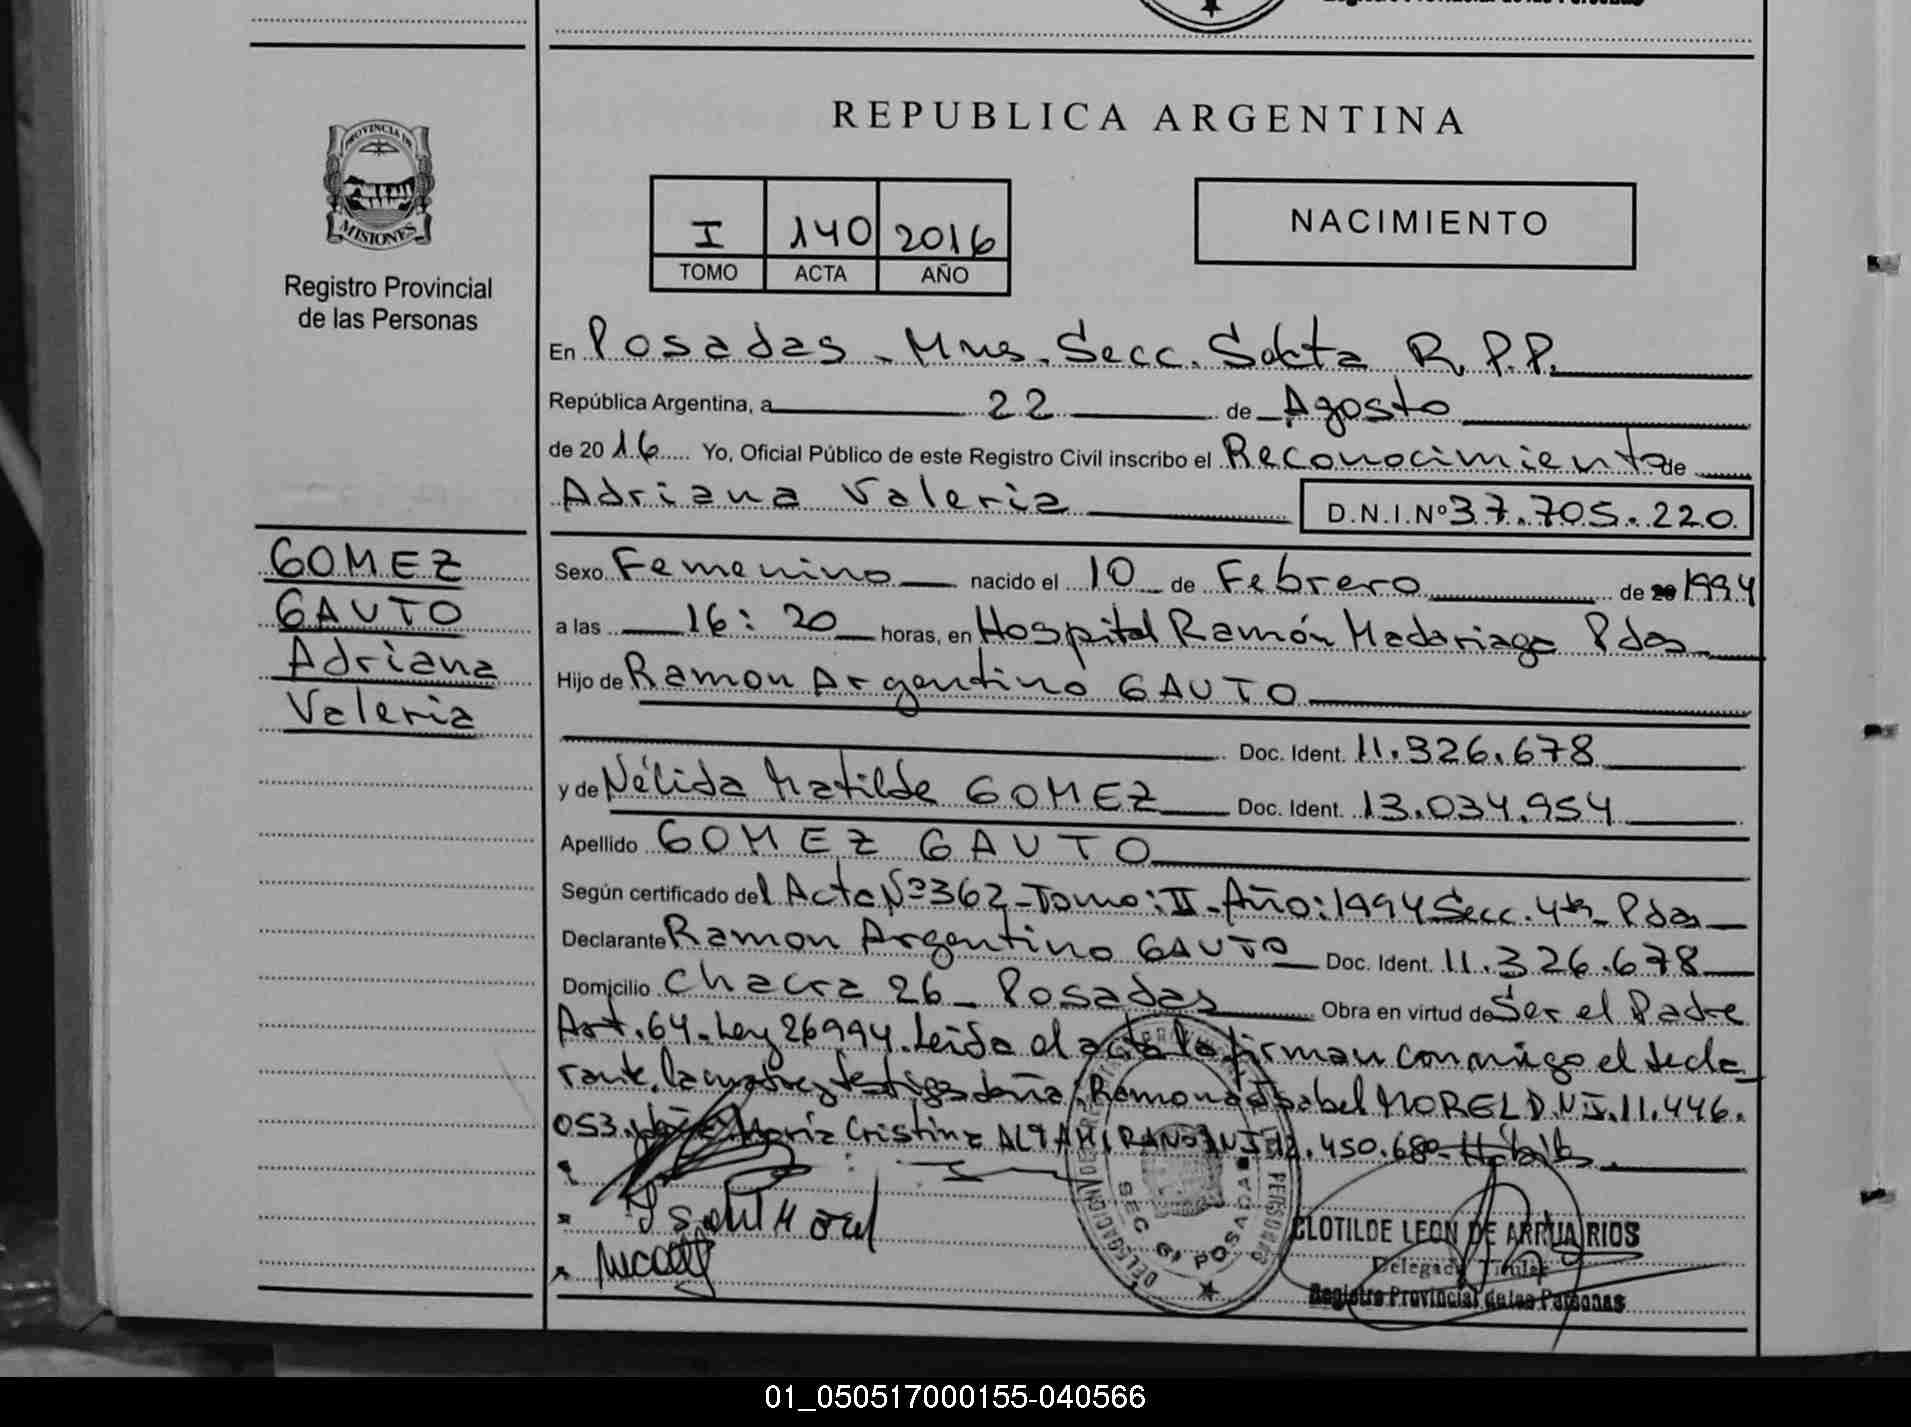 PROVINCIA DE
MISIONES
Registro Provincial
de las Personas
REPUBLICA ARGENTINA
I 140 2016
TOMO ACTA AÑO
NACIMIENTO
En Posadas - Mnes. Secc. Sexta R.P.P.
República Argentina, a 22 de Agosto
de 2016 Yo, Oficial Público de este Registro Civil inscribo el Reconocimiento de
Adriana Valeria D.N.I.Nº 37.705.220
GOMEZ
GAUTO
Adriana
Valeria
Sexo Femenino nacido el 10 de Febrero de 1994
a las 16:20 horas, en Hospital Ramón Madariaga Pdas
Hijo de Ramon Argentino GAUTO
Doc. Ident. 11.326.678
y de Nélida Matilde GOMEZ Doc. Ident. 13.034.954
Apellido GOMEZ GAUTO
Según certificado del Acta Nº 362 - Tomo: II - Año: 1994 Secc. 4ta - Pdas
Declarante Ramon Argentino GAUTO Doc. Ident. 11.326.678
Domicilio Chacra 26 - Posadas Obra en virtud de Ser el Padre
Art. 64 - Ley 26994. Leida el acta la firman conmigo el decla-
rante, la madre y testigos doña Ramona Isabel MOREL D.N.I. 11.446.
053 y doña María Cristina ALTAMIRANO D.N.I. 12.450.680
Isabel Morel
SEC 6ª POSADAS
CLOTILDE LEON DE ARRUA RIOS
Delegada Titular
Registro Provincial de las Personas
01_050517000155-040566